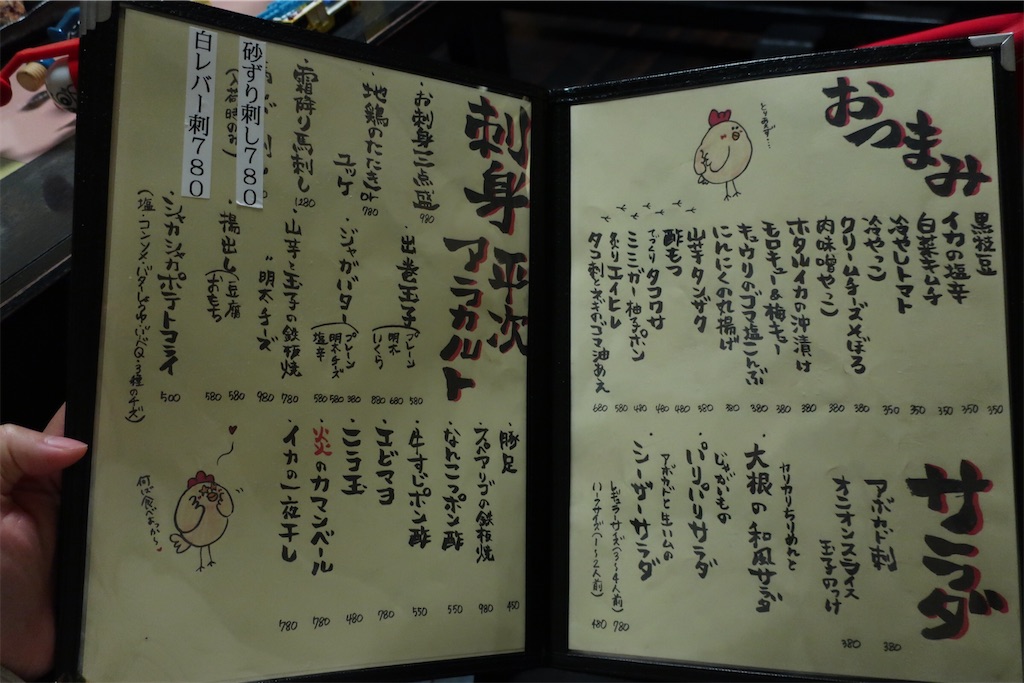 おつまみ
とりあえず…
黒枝豆 350
イカの塩辛 350
白菜キムチ 350
冷やしトマト 350
冷やっこ 350
クリームチーズそぼろ 380
肉味噌やっこ 380
ホタルイカの沖漬け 380
モロキュー&梅キュー 380
キュウリのゴマ塩こんぶ 380
にんにくの丸揚げ 380
山芋タンザク 380
酢もつ 480
てっくりタコワサ 480
ミミガー柚子ポン 480
炙りエイヒレ 580
タコ刺と水菜のゴマ油あえ 680
サラダ
アボカド刺 380
オニオンスライス
玉子のっけ 380
カリカリちりめんと
・大根の和風サラダ
じゃがいもの
・パリパリサラダ
アボカドと生ハムの
・シーザーサラダ
レギュラーサイズ(3〜4人前) 780
ハーフサイズ(1〜2人前) 480
刺身
・お刺身三点盛 980
・地鶏のたたきor
ユッケ 780
・霜降り馬刺し 1280
(入荷時のみ)
砂ずり刺し780
白レバー刺780
平次アラカルト
・出巻玉子(プレーン 580
明太 680
いくら 880
・ジャガバター(プレーン 380
明太チーズ 580
塩辛 580
・山芋と玉子の鉄板焼 780
〃 明太チーズ 980
・揚出し(豆腐 580
おもち 580
・ジャカジャカポテトフライ 500
(塩・コンソメ・バターしょうゆ・BBQ・3種のチーズ)
・豚足 450
・スペアリブの鉄板焼 980
・なんこつポン酢 550
・牛すじポン酢 550
・エビマヨ 780
・ニラ玉 480
・炎のカマンベール 780
・イカの一夜干し 780
何ば食べよっかな〜